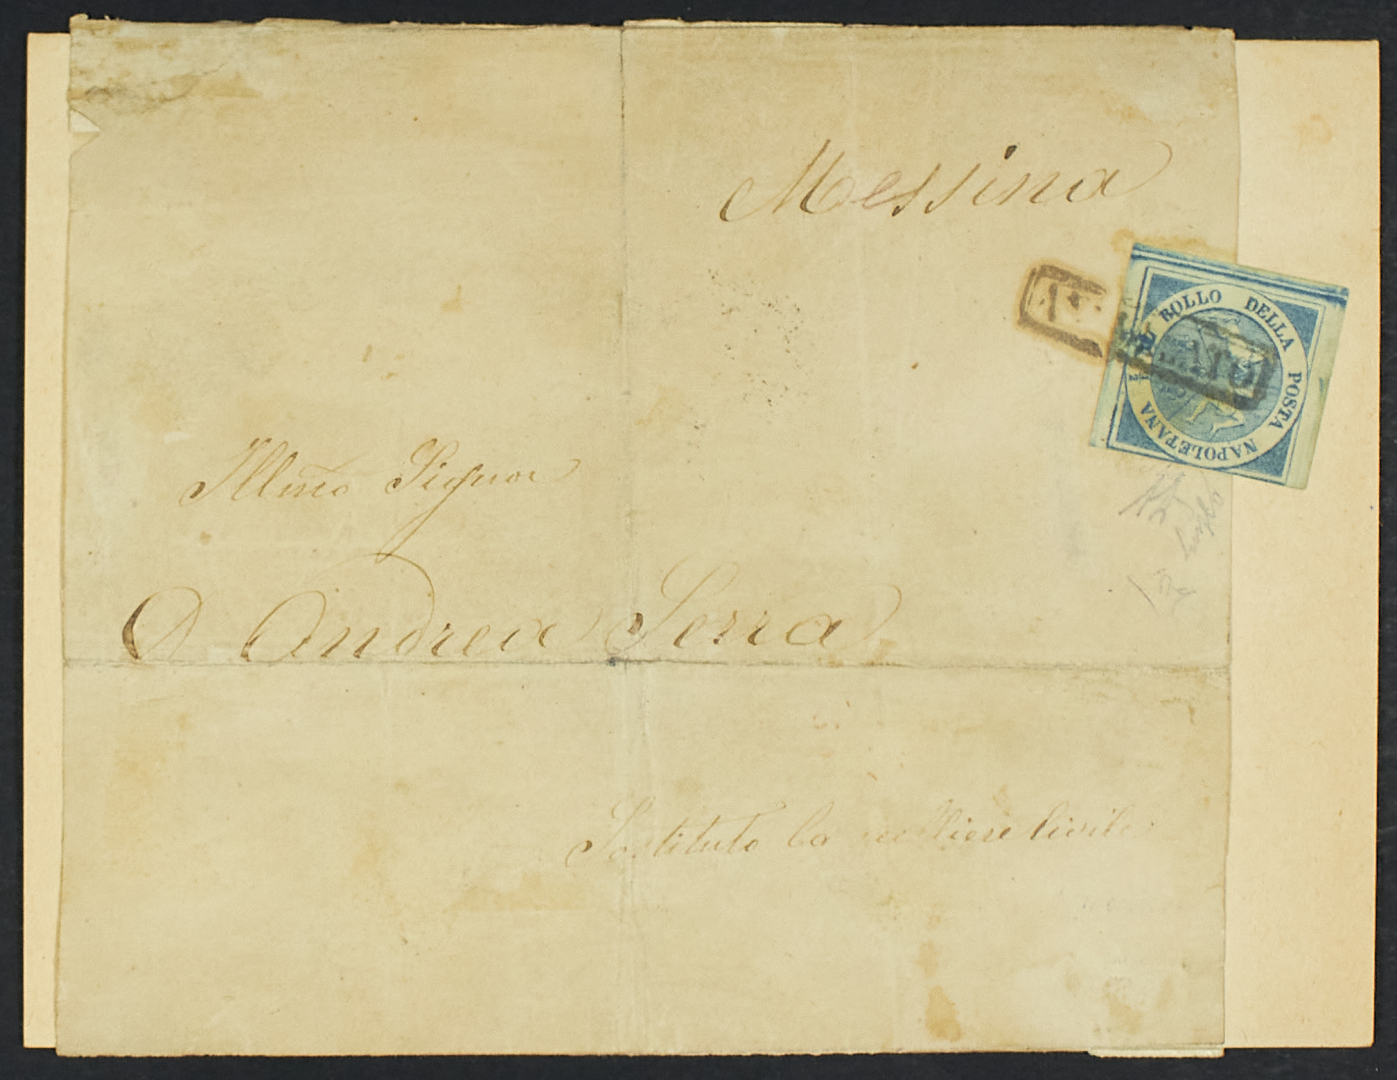 Messina
BOLLO DELLA POSTA NAPOLETANA
Illmo Signor
D Andrea Serra
Sostituto Cancelliere Civile